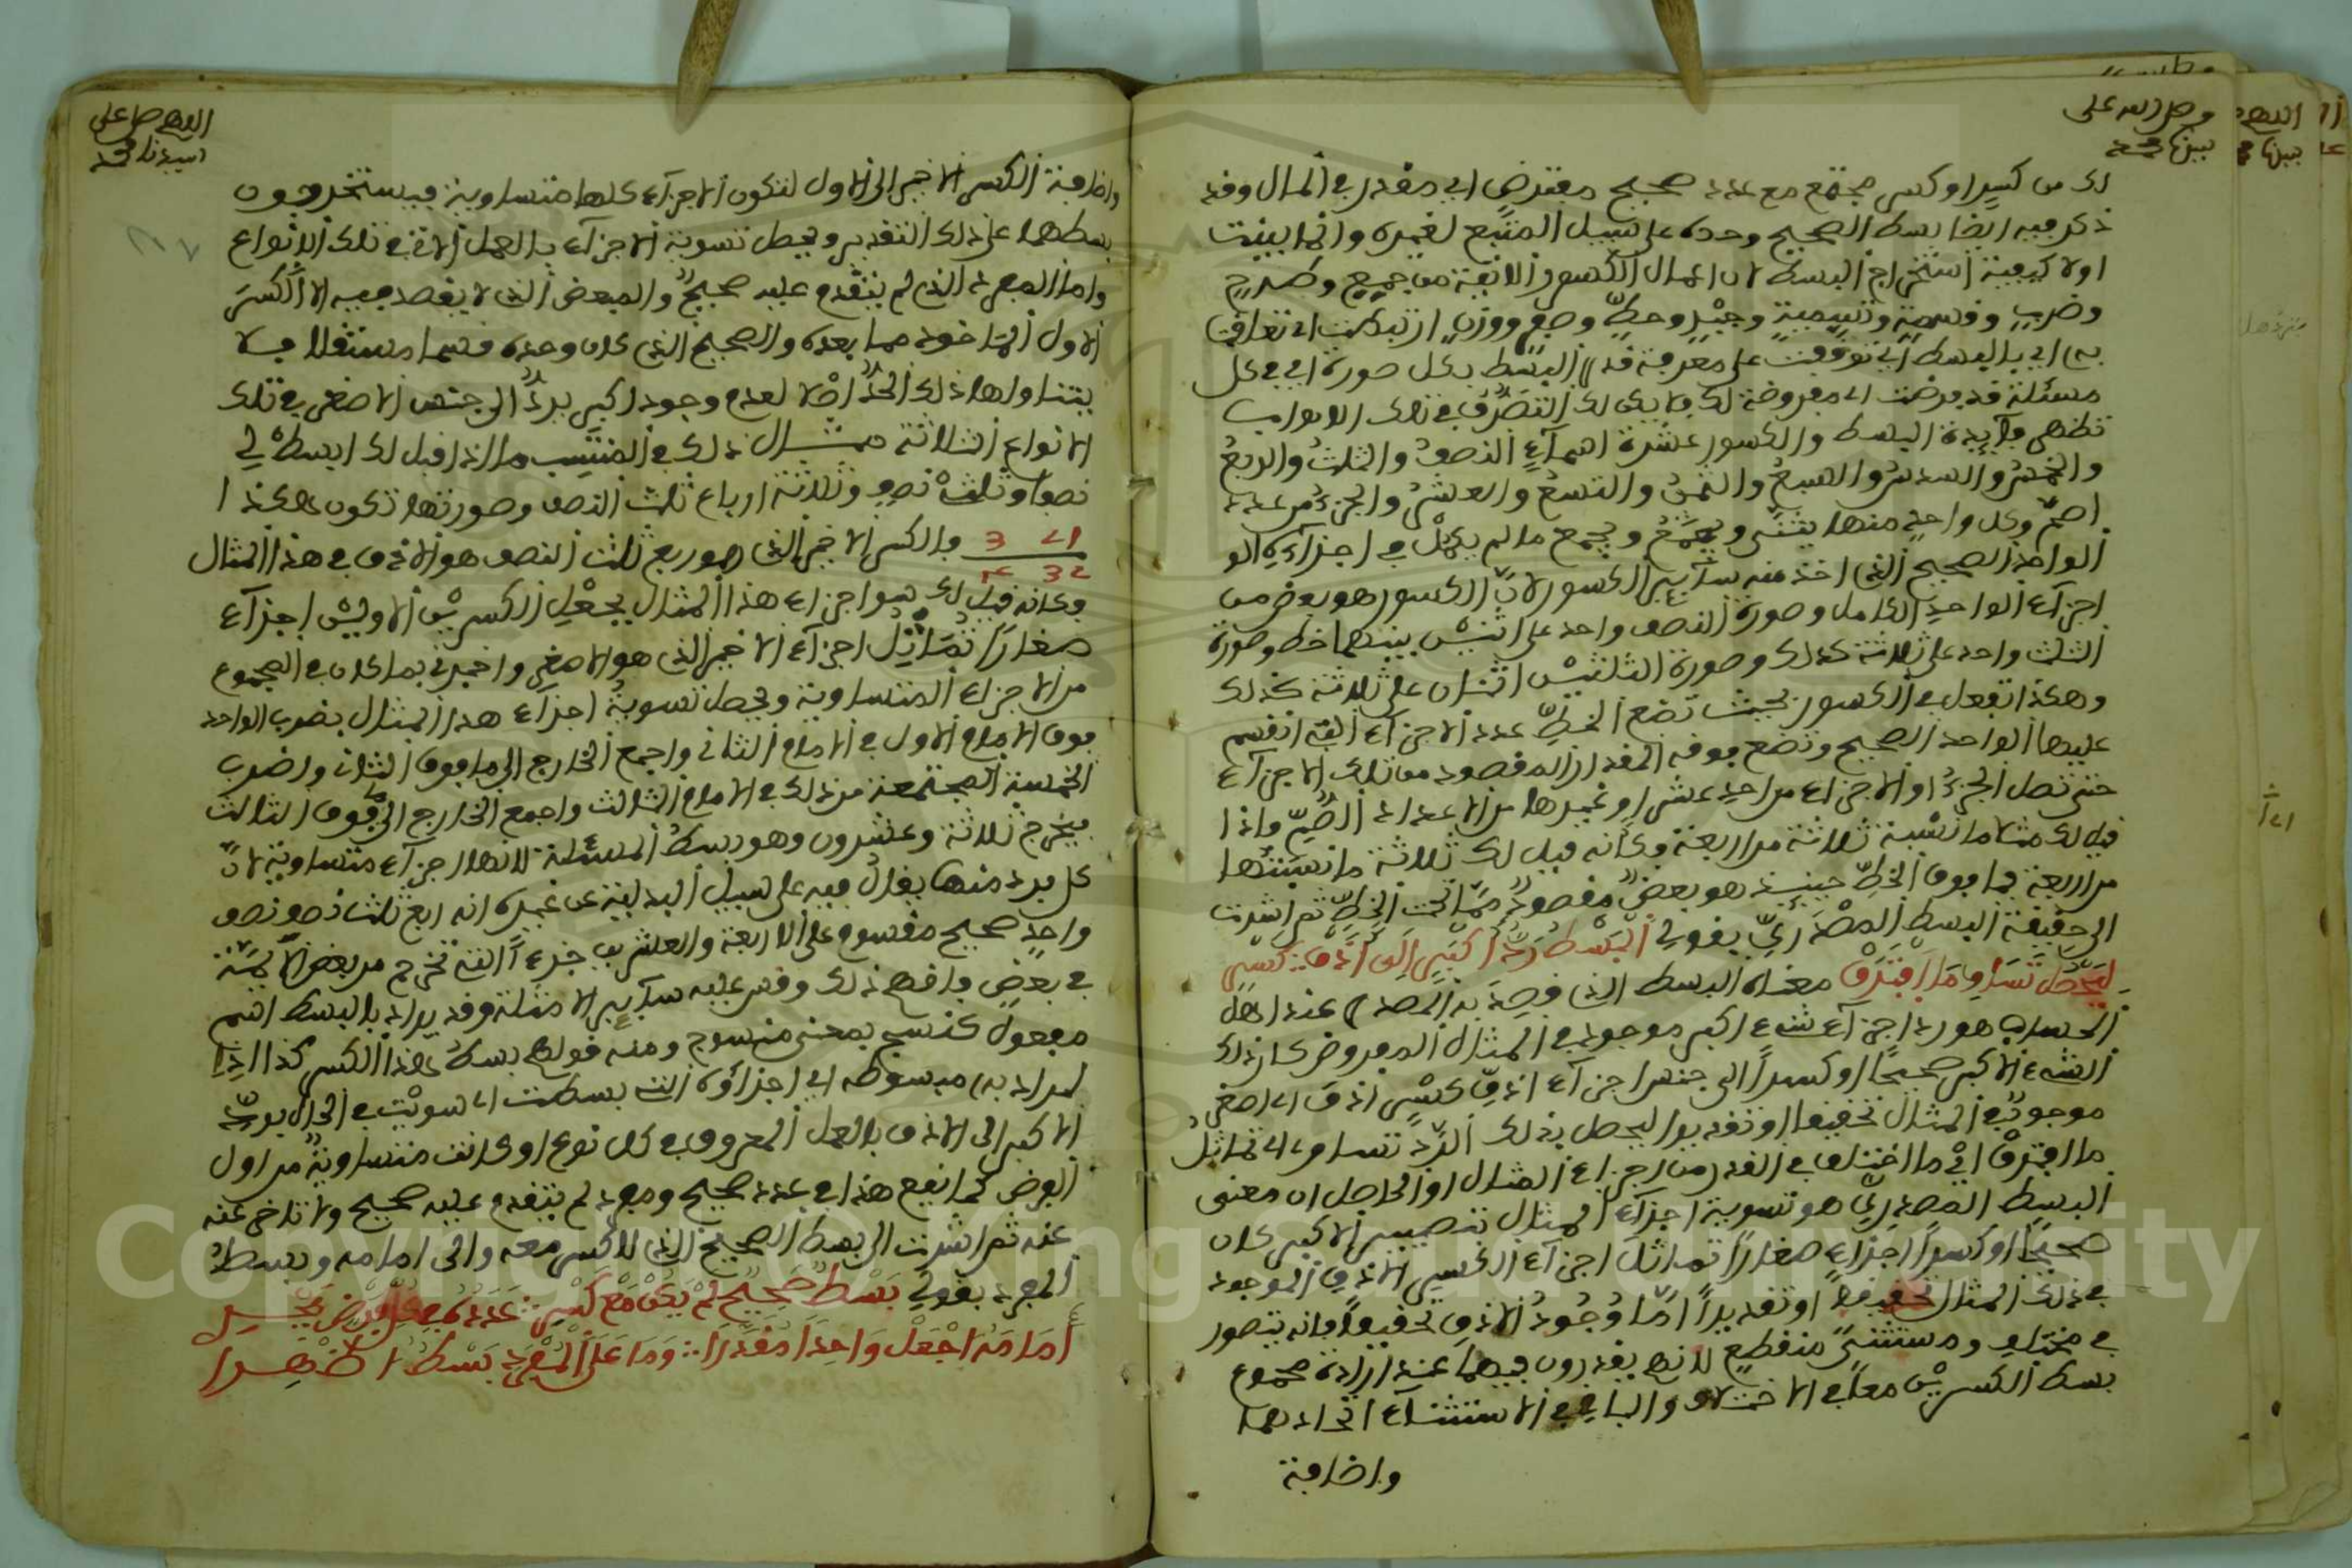 وصل الله على
نبينا محمد
لك من كسر او كسر مجتمع مع عدد صحيح مفترض اي مقدر في المال وقد
ذكر فيه ايضا بسط الصحيح وحده على سبيل التبع لغيره وانما بينت
اولا كيفية استخراج البسط لان اعمال الكسور الاتية من جميع وطرح
وضرب وقسمة وتسمية وجبر وحط وصرف ووزن ارتبطت اي تعلقت
به اي بالبسط اي توقفت على معرفة قدر البسط بكل صورة اي في كل
مسئلة قد فرضت اي مفروضة لك فلا يمكن لك التصرف في تلك الابواب
تظهر فائدة البسط والكسور عشرة اسماء النصف والثلث والربع
والخمس والسدس والسبع والثمن والتسع والعشر والجزء من عدد
اصم وكل واحد منها يثنى ويجمع ويجمع ما لم يكمل في اجزائه الو
الواحد الصحيح الذي اخذ منه سائر الكسور لان الكسور هو بعض من
اجزاء الواحد الكامل وصورة النصف واحد على اثنين بينهما خط وصورة
الثلث واحد على ثلاثة كذلك وصورة الثلثين اثنان على ثلاثة كذلك
وهكذا تفعل في الكسور بحيث تضع الخط عدد الاجزاء التي انقسم
عليها الواحد الصحيح وتضع فوقه المقدار المقصود من تلك الاجزاء
حتى تصل الجزء او الاجزاء من احد عشر او غيرها من الاعداد الصم فاذا
قيل لك مثلا ما نسبة ثلاثة من اربعة فكأنه قيل لك ثلاثة ما نسبتها
من اربعة فما فوق الخط حينئذ هو بعض مقصود مما تحت الخط ثم اشرت
الى حقيقة البسط المصدري بقولي البسط رد اكبر الى ادق كسر
ليحصل تساو ما افترق معناه البسط الذي قصد به المصدر عند اهل
الحساب هو رد اجزاء شيء اكبر موجود في المثال المفروض كان ذلك
الشيء الاكبر صحيحا او كسرا الى جنس اجزاء ادق كسر ادق اي اصغر
موجود في المثال تحقيقا او تقديرا ليحصل بذلك الرد تساو اي تماثل
ما افترق اي ما اختلف في القدر من اجزاء المثال او الحاصل ان معنى
البسط المصدري هو تسوية اجزاء المثال بتصيير الاكبر كان
صحيحا او كسرا اجزاء صغارا تماثل اجزاء الكسر الادق الموجود
في ذلك المثال تحقيقا او تقديرا اما وجود الادق تحقيقا فانه يتصور
في مختلف ومستثنى منقطع لانهم يقدرون فيهما عند ارادة مجموع
بسط الكسرين معا في الاختلاف والباقي في الاستثناء اتحادهما
واضافة
اللهم صل على
سيدنا محمد
واضافة الكسر الاخير الى الاول لتكون الاجزاء كلها متساوية فيستخرجون
بسطهما على ذلك التقدير ويحصل تسوية الاجزاء بالعمل الاتي في تلك الانواع
واما المفرد الذي لم يتقدم عليه صحيح والمبعض الذي لا يقصد فيه الا الكسر
الاول الماخوذ مما بعده والصحيح الذي كان وحده قسما مستقلا فلا
يتناولها ذلك الحد اصلا لعدم وجود اكبر يرد الى جنس الاصغر في تلك
الانواع الثلاثة مثال ذلك في المنتسب ما اذا قيل لك ابسط لي
نصفا وثلث نصف وثلاثة ارباع ثلث النصف وصورتها تكون هكذا
فالكسر الاخير الذي هو ربع ثلث النصف هو الادق في هذا المثال
وكانه قيل لك سو اجزاء هذا المثال بجعل الكسرين الاولين اجزاء
صغارا تماثل اجزاء الاخير الذي هو الاصغر واخبرني بما كان في المجموع
من الاجزاء المتساوية ويحصل تسوية اجزاء هذا المثال بضرب الواحد
فوق الامام الاول في الامام الثاني واجمع الخارج الى ما فوق الثاني واضرب
الخمسة المجتمعة من ذلك في الامام الثالث واجمع الخارج الى ما فوق الثالث
فيخرج ثلاثة وعشرون وهو بسط المسئلة لانها اجزاء متساوية لان
كل فرد منها يقال فيه على سبيل البدلية عن غيره انه ربع ثلث نصف
واحد صحيح مقسوم على الاربعة والعشرين جزءا التي تخرج من بعض الايمة
في بعض فافهم ذلك وقس عليه سائر الامثلة وقد يراد بالبسط اسم
مفعول كنسج بمعنى منسوج ومنه قولهم بسط هذا الكسر كذا اذا
المراد به مبسوطه اي اجزاؤه التي بسطت اي سويت في الحال برد
الاكبر الى الادق بالعمل المعروف في كل نوع او كانت متساوية من اول
الفرض كما يقع هذا في عدد صحيح ومفرد لم يتقدم عليه صحيح ولا تاخر عنه
عنه ثم اشرت الى بسط الصحيح الذي لا كسر معه والى امامه وبسط
المفرد بقولي بسط صحيح لم يكن مع كسر عدده
امامه اجعل واحدا مقدرا وما على المفرد بسط اظهرا